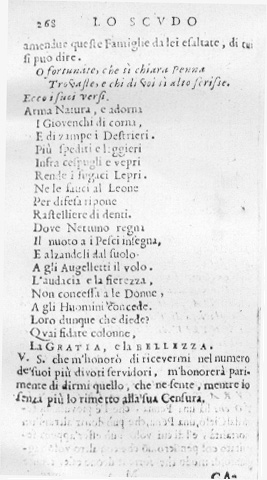 268 LO SCVDO
amendue queste Famiglie da lei esaltate, di tui
si può dire.
O fortunate, che sì chiara Penna
Trovaste, e chi di voi sì alto scrisse.
Ecco i suoi versi.
Arma Natura, e adorna
I Giovenchi di corna,
E di zampe i Destrieri.
Più spediti e leggieri
Infra cespugli e vepri
Rende i fugaci Lepri.
Ne le fauci al Leone
Per difesa ripone
Rastelliere di denti.
Dove Nettuno regna
Il nuoto a i Pesci insegna,
E alzandeli dal suolo
A gli Augelletti il volo.
L'audacia e la fierezza,
Non concessa a le Donne,
A gli Huomini concede.
Loro dunque che diede?
Quai fidate colonne,
La GRATIA, e la BELLEZZA.
V. S. che m'honorò di ricevermi nel numero
de'suoi più divoti servidori, m'honorerà pari-
mente di dirmi quello, che ne sente, mentre io
senza più lo rimetto alla sua Censura.
CA-